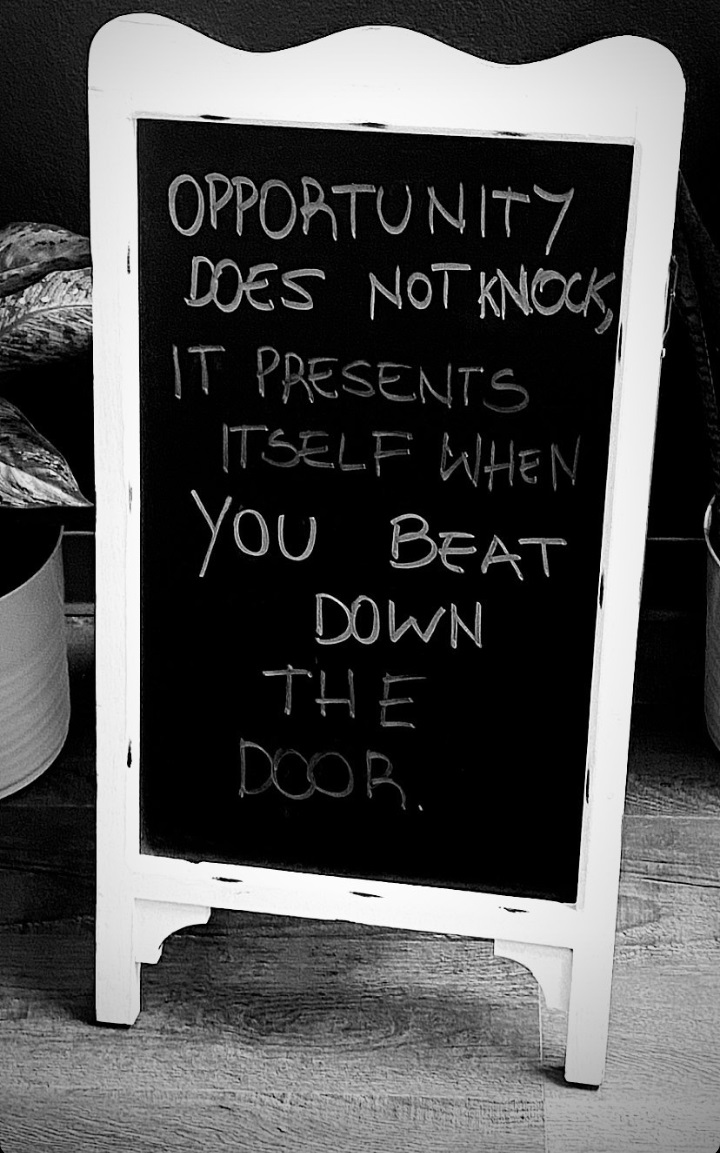 OPPORTUNITY
DOES NOT KNOCK,
IT PRESENTS
ITSELF WHEN
YOU BEAT
DOWN
THE
DOOR.